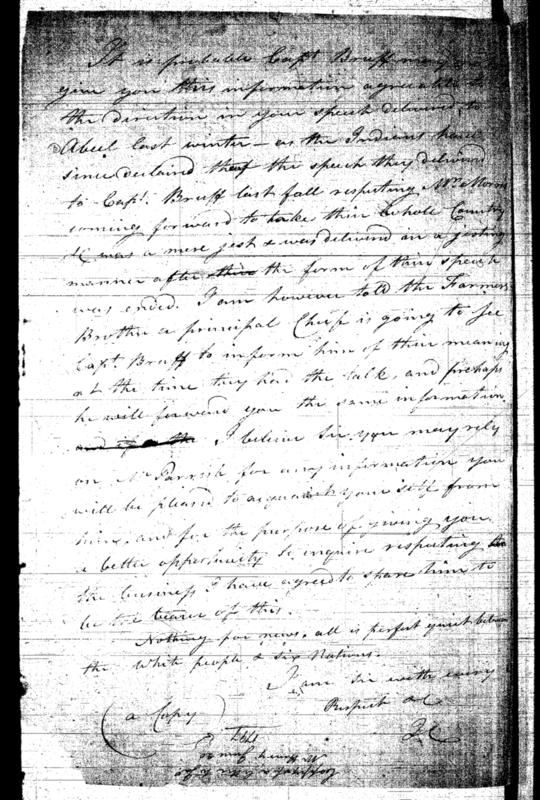 It is probable Capt Bruff may
give you this information agreeable to
the direction in your speech delivered to
Abeel last winter – as the Indians have
since declared that the speech they delivered
to Capt. Bruff last fall respecting Mr. Morris
coming forward to take their whole Country
&c was a mere jest & was delivered in a jesting
manner after this the form of their speech
was ended. I am however told the Farmers
Brother a principal Chief is going to see
Capt. Bruff to inform him of their meaning
at the time they had the talk, and perhaps
he will forward you the same information.
I believe Sir, you may rely
on Mr. Parrish for any information you
will be pleased to acquaint your self from
him, and for the purpose of giving you
a better opportunity to inquire respecting
the business I have agreed to spare him to
be the bearer of this.
Nothing for news. all is perfect quiet between
the White people & six Nations.
I am sir with every
Respect &c
(a Copy)